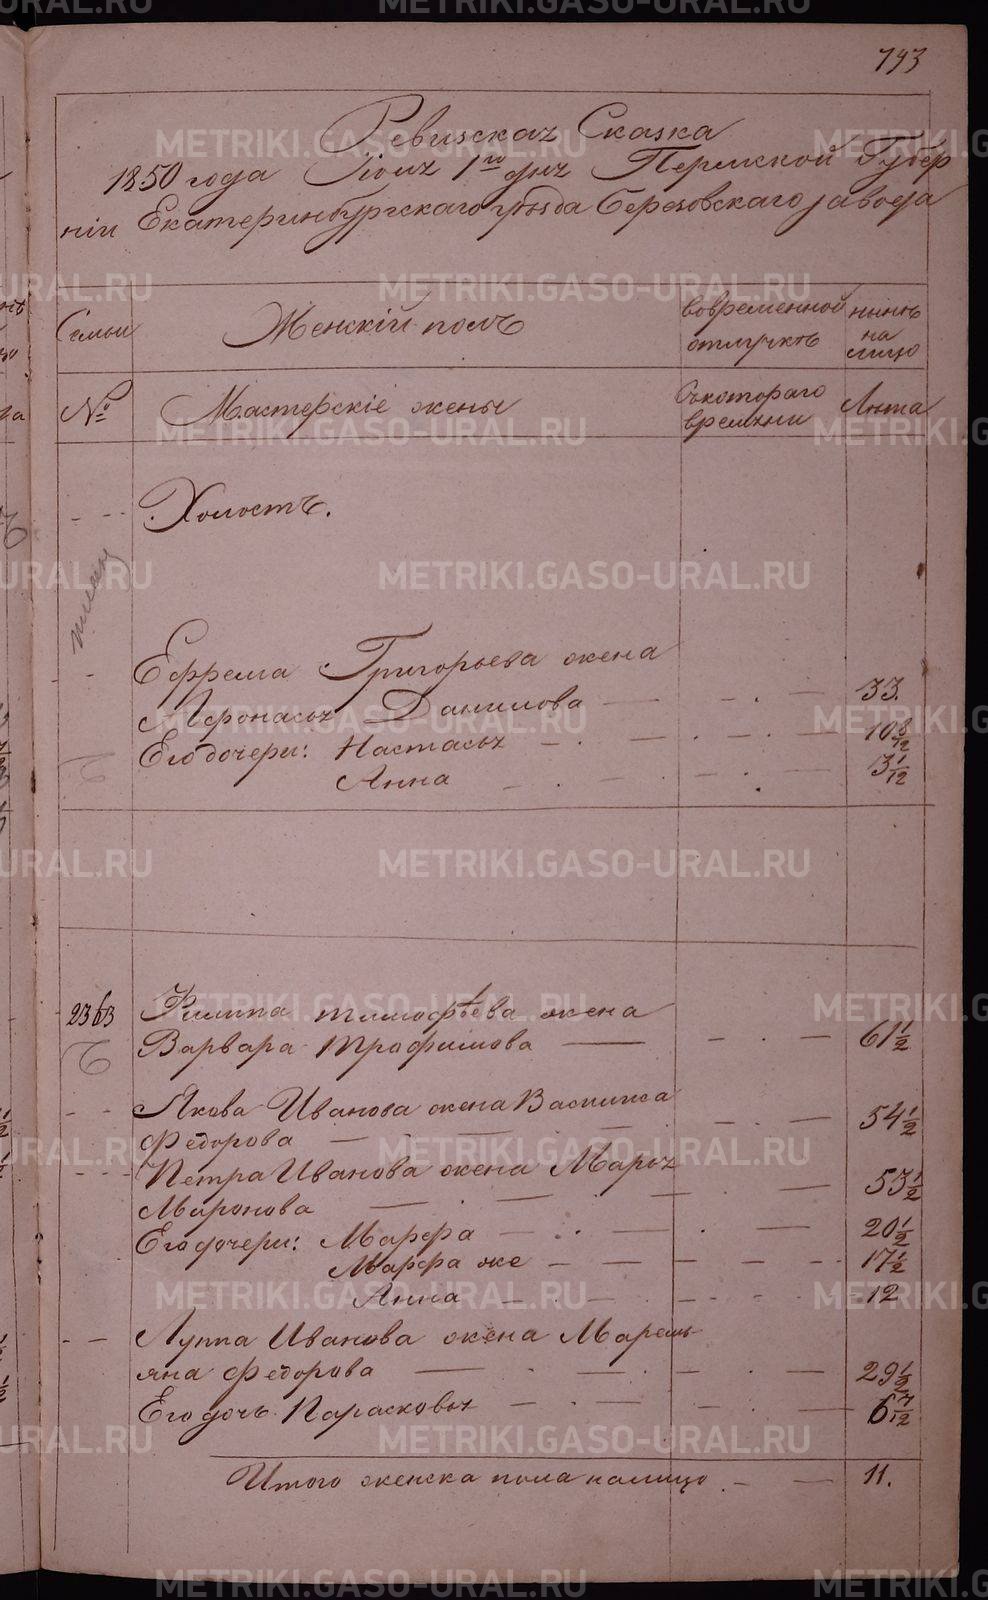 793
Ревизская Сказка
1850 года Іюня 1го дня Пермской Губер
ніи Екатеринбургскаго уѣзда Березовскаго завода
Семьи
Женскій полъ
вовременной отлучкѣ
нынѣ на лицо
№
Мастерскіе жены
Съкотораго времѣни
Лѣта
Холостъ.
Ефрема Григорьева жена
Афонасья Данилова 33.
Его дочери: Настасья 10 8/12
Анна 3 1/12
2363 Филипа Тимофѣева жена
Варвара Трофимова 61 1/2
Якова Иванова жена Василиса
Федорова 54 1/2
Петра Иванова жена Марья
Миронова 53 1/2
Его дочери: Марфа 20 1/2
Марфа же 17 1/2
Анна 12
Луппа Иванова жена Маремь-
яна Федорова 29 1/2
Его дочь Парасковья 6 7/12
Итого женска пола налицо 11.
METRIKI.GASO-URAL.RU